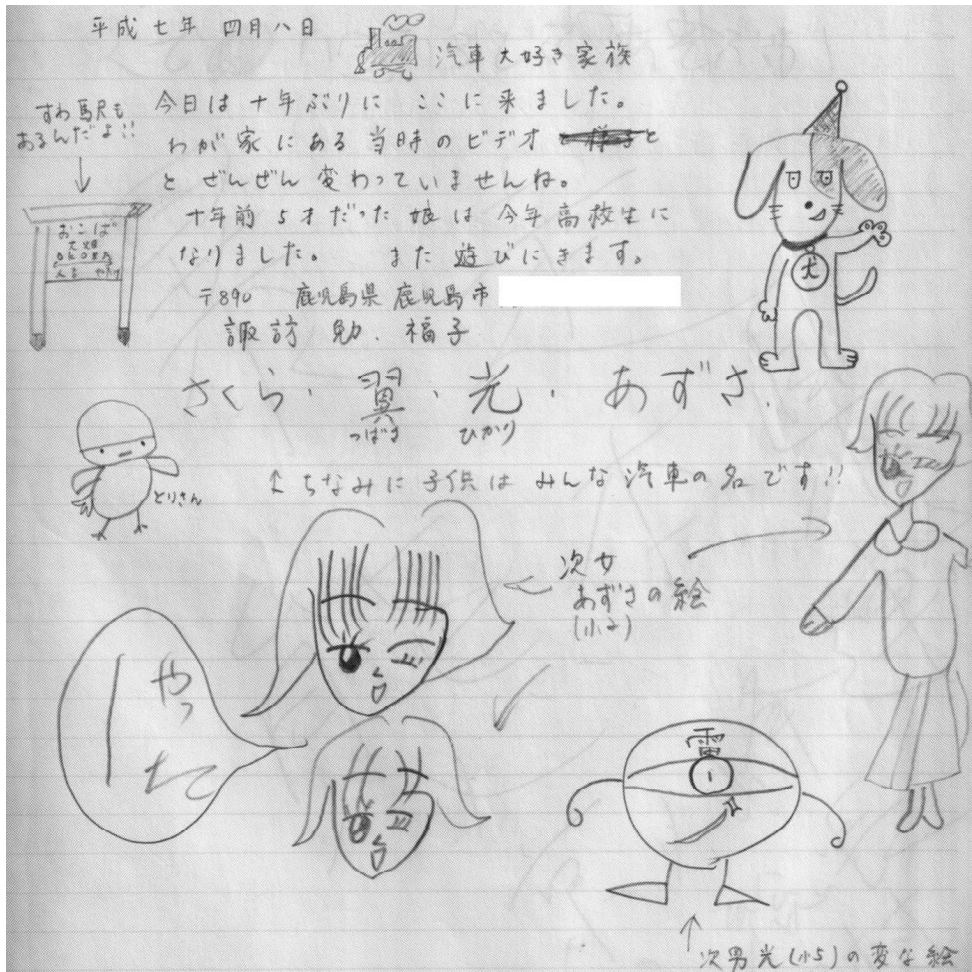 平成七年 四月八日
汽車大好き家族
すわ駅も
あるんだよ!!
今日は十年ぶりに ここに来ました。
わが家にある当時のビデオ と
と ぜんぜん 変わっていませんね。
十年前 5才だった 娘は 今年高校生に
なりました。 また 遊びにきます。
おこば
大畑
〒890 鹿児島県 鹿児島市
諏訪 勉. 福子
さくら・翼・光・あずさ.
つばさ ひかり
犬
とりさん
↑ちなみに子供は みんな 汽車の名です!!
次女
あずさの絵
(小2)
やっ
たー
雷
次男光(小5)の変な絵